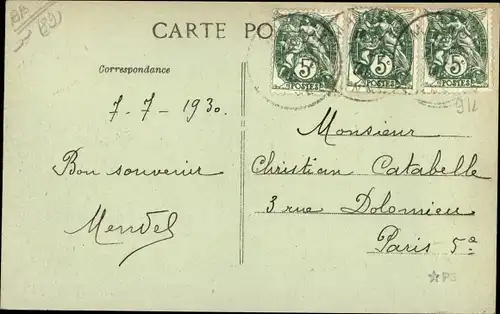 CARTE PO
Correspondance
7-7-1930
Bon souvenir
Mendel
5 5 5
POSTES POSTES POSTES
Monsieur
Christian Catabelle
3 rue Dolomieu
Paris 5e
912
(89)
★PS